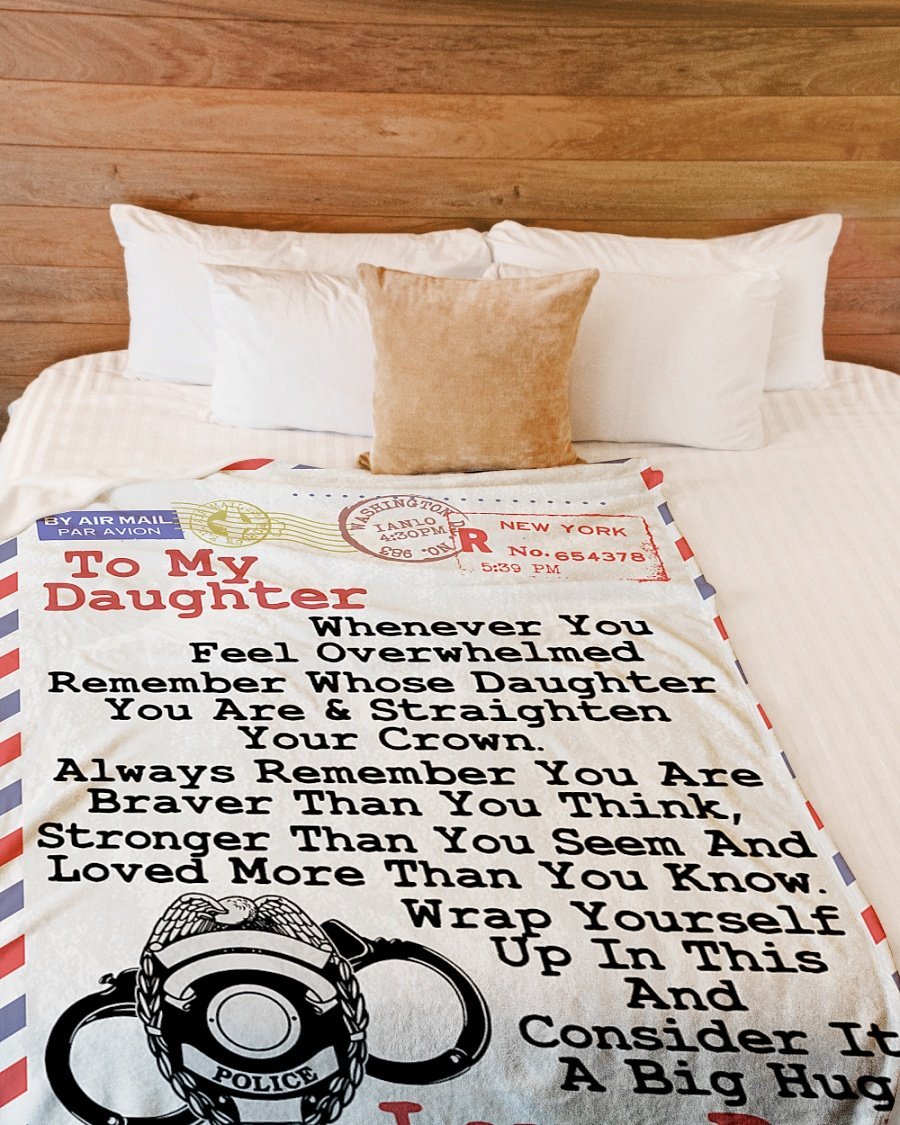 BY AIR MAIL
PAR AVION
WASHINGTON D.
JAN10
4:30PM
NO. 983
R
NEW YORK
No. 654378
5:39 PM
To My
Daughter
Whenever You
Feel Overwhelmed
Remember Whose Daughter
You Are & Straighten
Your Crown.
Always Remember You Are
Braver Than You Think,
Stronger Than You Seem And
Loved More Than You Know.
Wrap Yourself
Up In This
And
Consider It
A Big Hug
POLICE